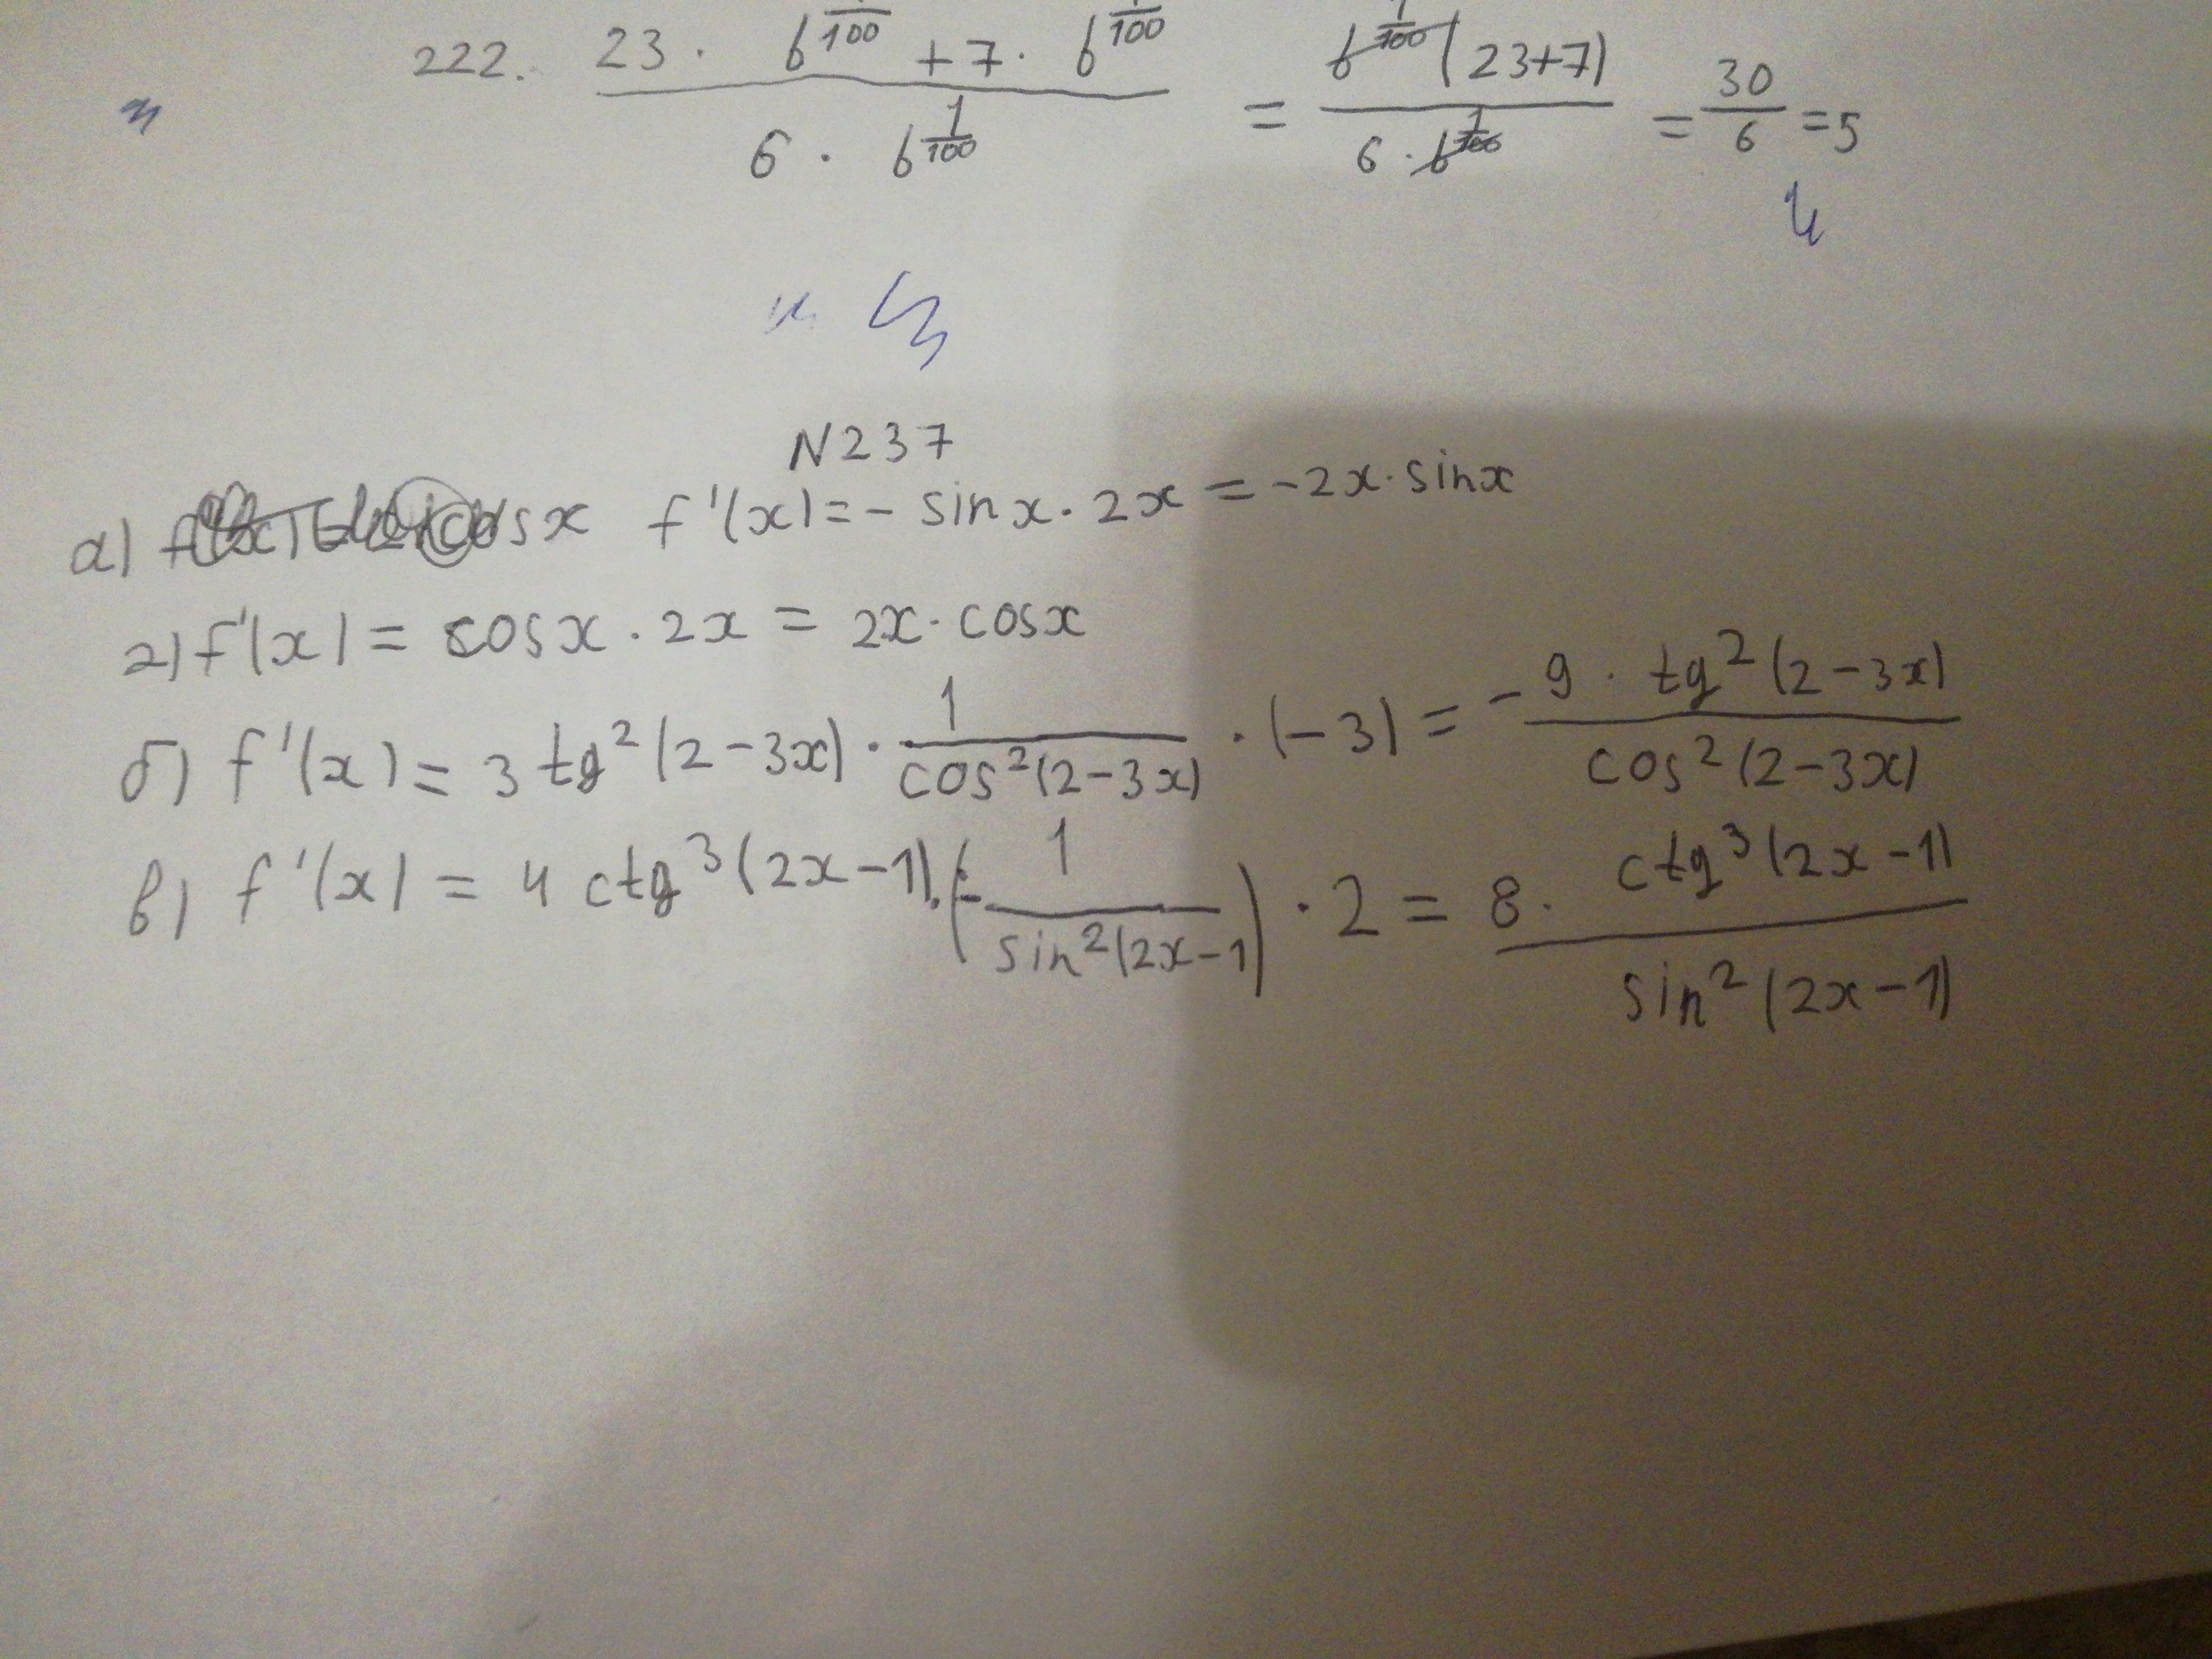 222. (23 · b^(1/100) + 7 · b^(1/100)) / (6 · b^(1/100)) = (b^(1/100) (23+7)) / (6 · b^(1/100)) = 30/6 = 5
N237
а) cosx f'(x) = - sinx · 2x = -2x · sinx
г) f'(x) = cosx · 2x = 2x · cosx
б) f'(x) = 3 tg²(2-3x) · 1/cos²(2-3x) · (-3) = - 9 · tg²(2-3x) / cos²(2-3x)
в) f'(x) = 4 ctg³(2x-1) · (- 1/sin²(2x-1)) · 2 = 8 · ctg³(2x-1) / sin²(2x-1)